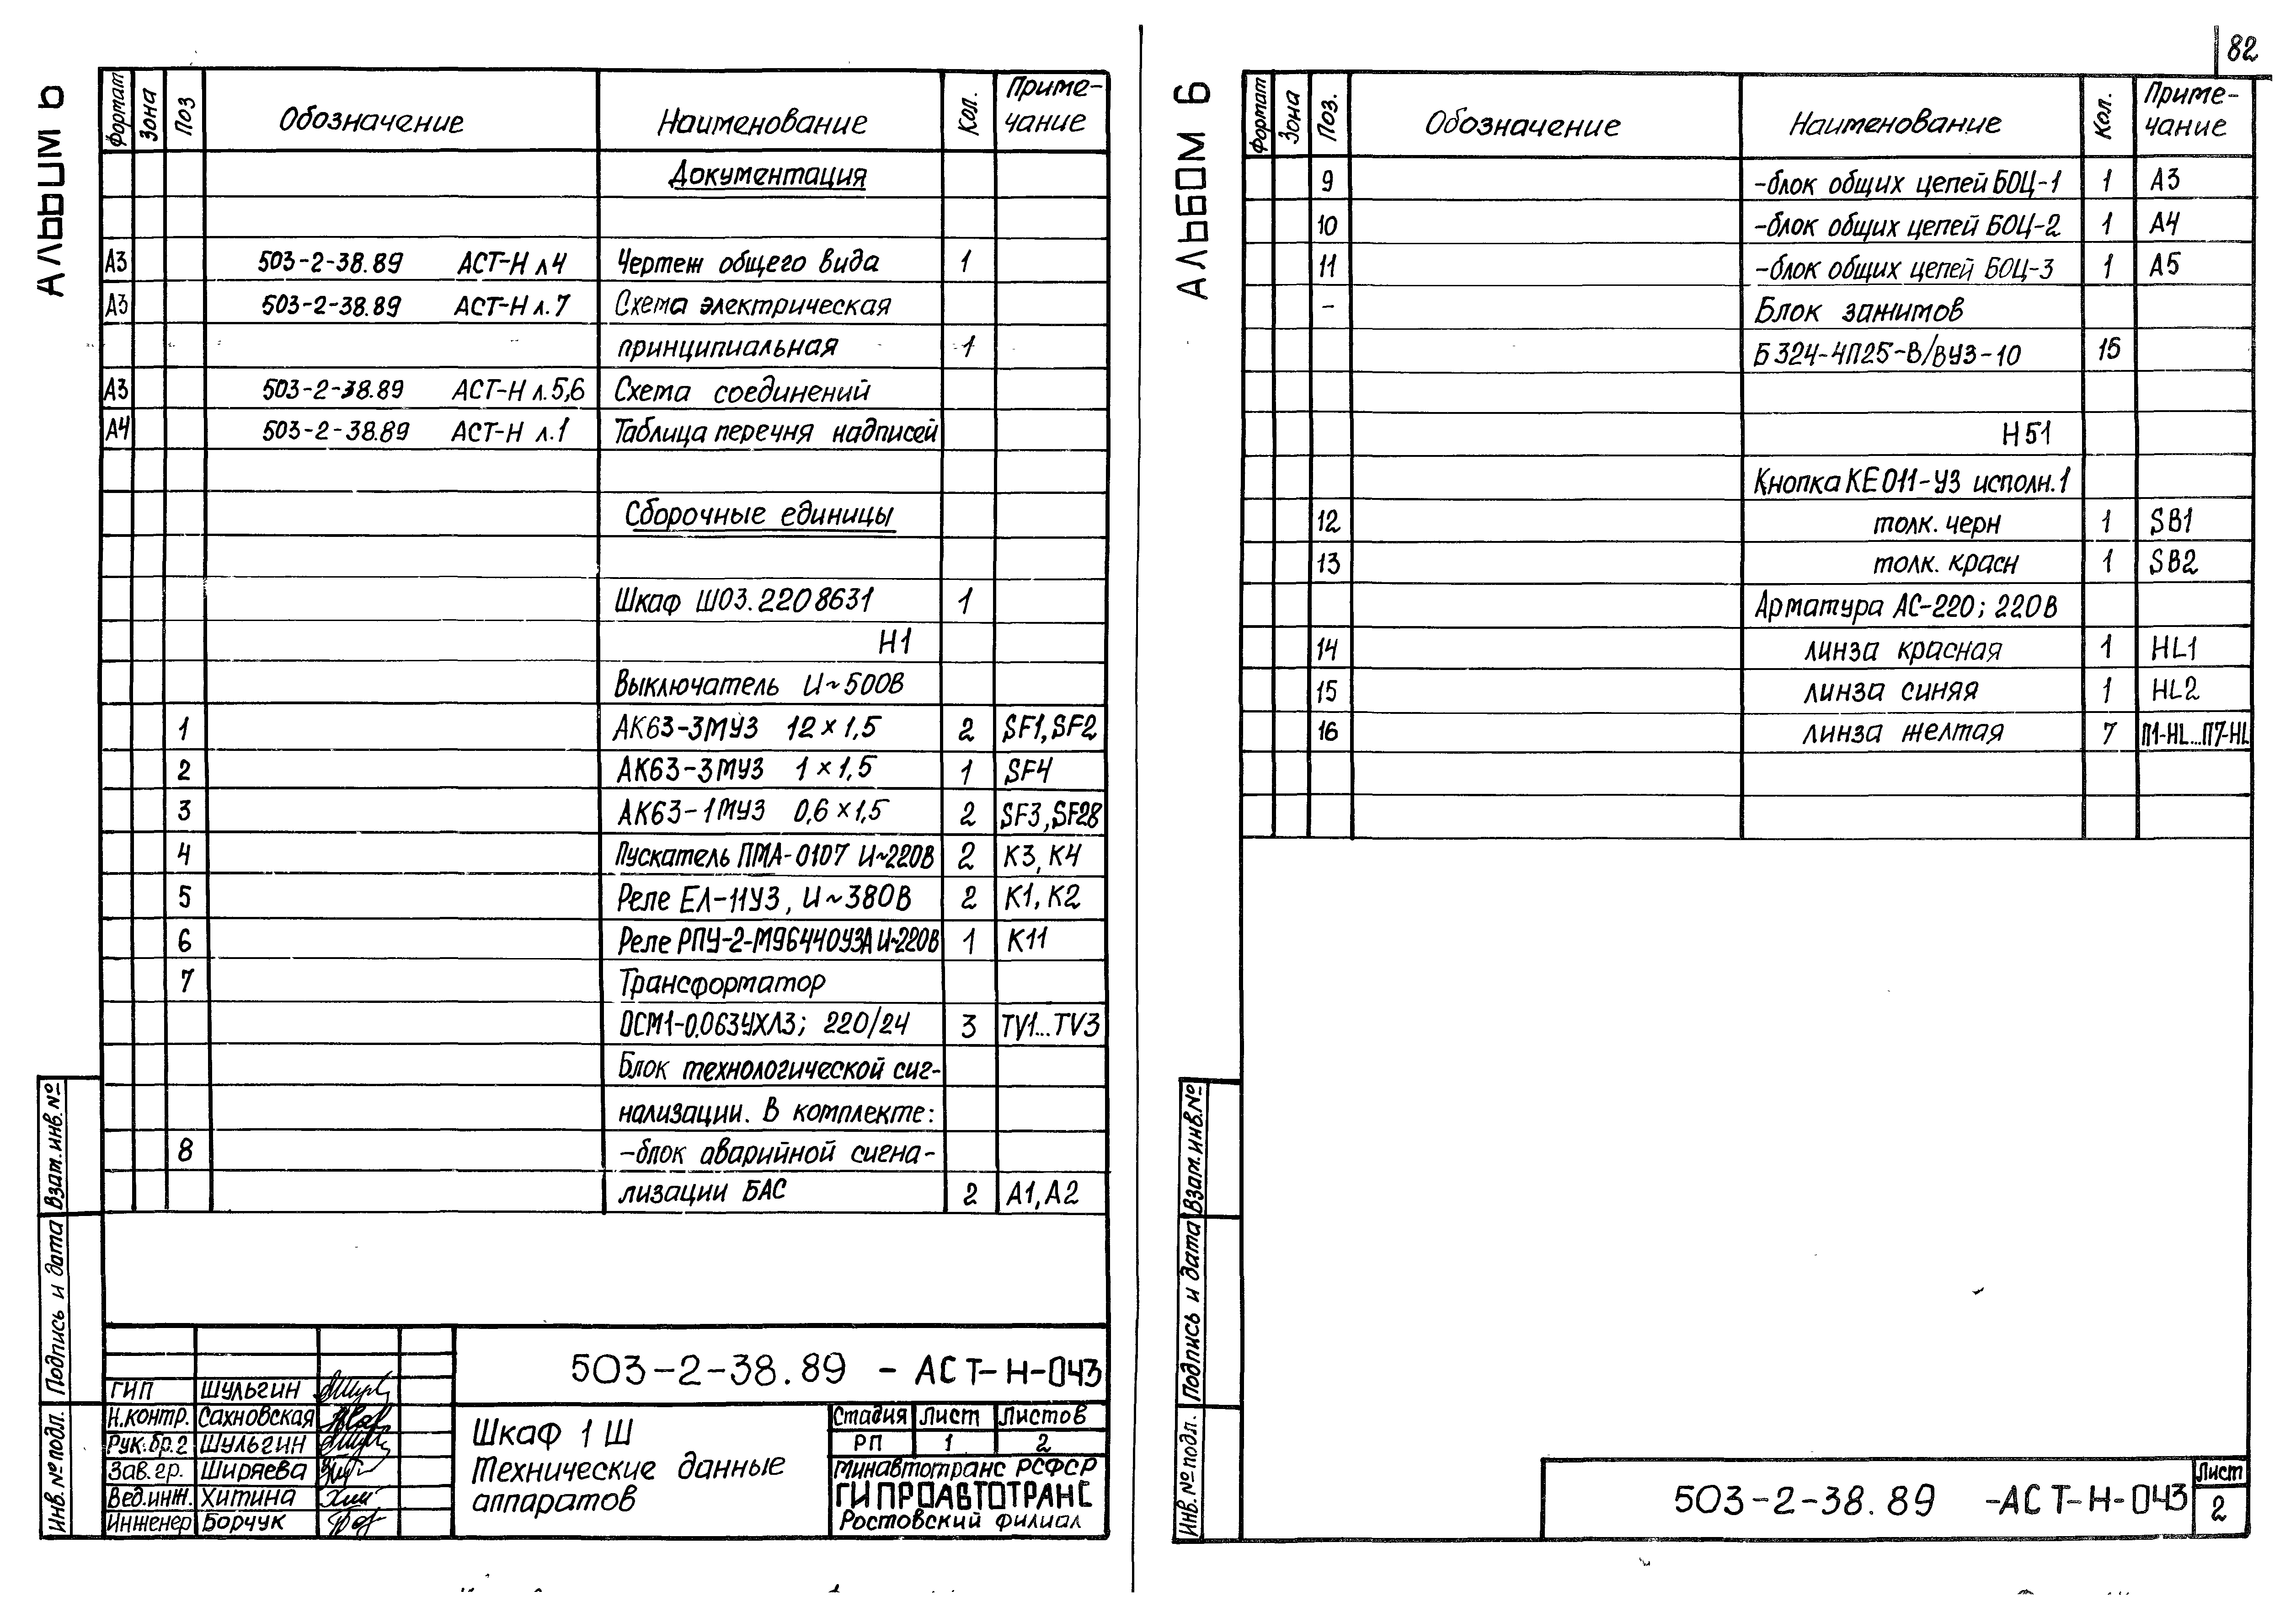 82
АЛЬБОМ 6
Формат Зона Поз Обозначение Наименование Кол. Приме-
чание
Документация
А3 503-2-38.89 АСТ-Н л4 Чертеж общего вида 1
А3 503-2-38.89 АСТ-Н л.7 Схема электрическая
принципиальная 1
А3 503-2-38.89 АСТ-Н л.5,6 Схема соединений
А4 503-2-38.89 АСТ-Н л.1 Таблица перечня надписей
Сборочные единицы
Шкаф Ш03.2208631 1
Н1
Выключатель И~500В
1 АК63-3МУ3 12×1,5 2 SF1,SF2
2 АК63-3МУ3 1×1,5 1 SF4
3 АК63-1МУ3 0,6×1,5 2 SF3,SF28
4 Пускатель ПМА-0107 И~220В 2 К3,К4
5 Реле ЕЛ-11У3, И~380В 2 К1,К2
6 Реле РПУ-2-М96440У3А И~220В 1 К11
7 Трансформатор
ОСМ1-0,063УХЛ3; 220/24 3 TV1...TV3
Блок технологической сиг-
нализации. В комплекте:
8 -блок аварийной сигна-
лизации БАС 2 А1,А2
Инв.№подл. Подпись и дата Взам.инв.№
503-2-38.89 - АСТ-Н-043
ГИП Шульгин
Н.контр. Сахновская
Рук.бр.2 Шульгин
Зав.гр. Ширяева
Вед.инж. Хитина
Инженер Борчук
Шкаф 1Ш
Технические данные
аппаратов
Стадия Лист Листов
РП 1 2
Минавтотранс РСФСР
ГИПРОАВТОТРАНС
Ростовский филиал
АЛЬБОМ 6
Формат Зона Поз. Обозначение Наименование Кол. Приме-
чание
9 -блок общих цепей БОЦ-1 1 А3
10 -блок общих цепей БОЦ-2 1 А4
11 -блок общих цепей БОЦ-3 1 А5
- Блок зажимов
Б324-4П25-В/ВУ3-10 15
Н51
Кнопка КЕ011-У3 исполн.1
12 толк. черн 1 SB1
13 толк. красн 1 SB2
Арматура АС-220; 220В
14 линза красная 1 HL1
15 линза синяя 1 HL2
16 линза желтая 7 П1-HL...П7-HL
Инв.№подл. Подпись и дата Взам.инв.№
503-2-38.89 -АСТ-Н-043
Лист
2